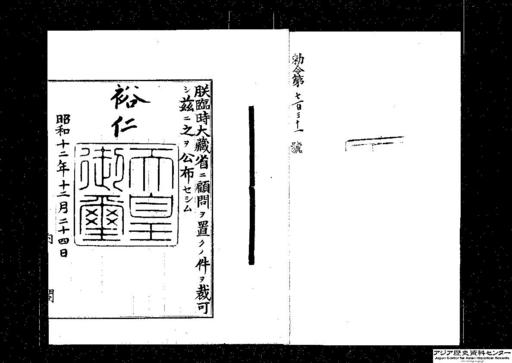 勅令第七百三十一號
朕臨時大藏省ニ顧問ヲ置クノ件ヲ裁可
シ茲ニ之ヲ公布セシム
裕仁
天皇御璽
昭和十二年十二月二十四日
内閣
アジア歴史資料センター
Japan Center for Asian Historical Records